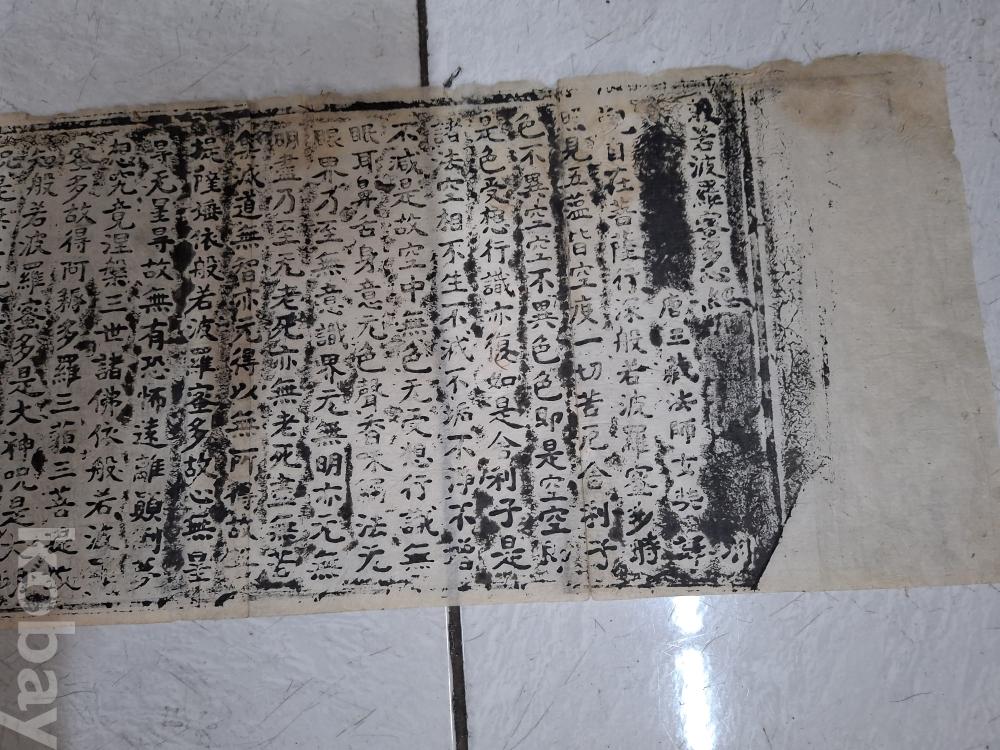 般若波羅蜜多心經
唐三藏法師玄奘譯
觀自在菩薩行深般若波羅蜜多時
照見五蘊皆空度一切苦厄舍利子
色不異空空不異色色即是空空即
是色受想行識亦復如是舍利子是
諸法空相不生不滅不垢不淨不增
不减是故空中無色无受想行識無
眼耳鼻舌身意无色聲香味觸法无
眼界乃至無意識界无無明亦无無
明盡乃至无老死亦無老死盡無苦
集滅道無智亦无得以無所得故
提薩埵依般若波羅蜜多故心無罣
㝵无罣㝵故無有恐怖遠離顛倒夢
想究竟涅槃三世諸佛依般若波
蜜多故得阿耨多羅三藐三菩提故
知般若波羅蜜多是大神咒是大明
kobay